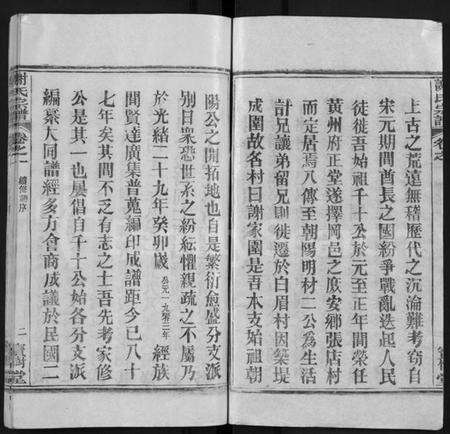 謝氏宗譜
卷之一
上古之荒遠無稽歷代之沉淪難考竊自
宋元期間酋長之國紛爭戰亂迭起人民
徙徙吾始祖千十公於元至正年間榮任
黃州府正堂遂擇岡邑之庶安鄉張店村
而定居焉八傳至朝陽明材二公為生活
計兄議弟留兄則徙遷於白眉村因築堤
成圍故名村曰謝家園是吾本支始祖朝
陽公之開拓地也自是繁衍愈盛分支派
別目衆恐世系之紛紜懼親疏之不屬乃
於光緒二十九年癸卯歲公元一九零三年經族
間賢達廣集普蒐編印成譜距今已八十
七年矣其間不乏有志之士吾先考家修
公是其一也屢倡自千十公始各分支派
編纂大同譜經多方會商成議於民國二
謝氏宗譜
卷之一
續修譜序
二
寶樹堂